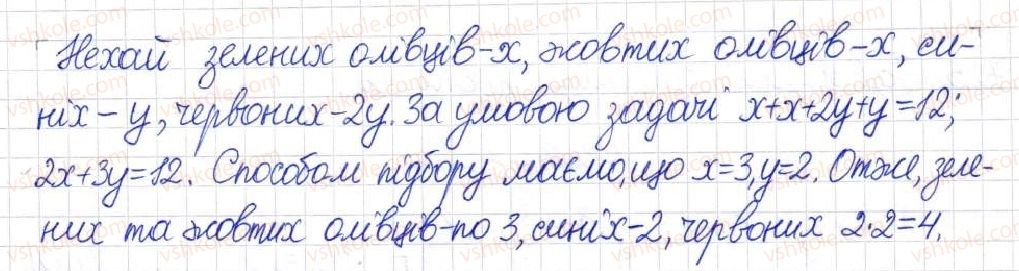 Нехай зелених олівців-х, жовтих олівців-х, си-
ніх-у, червоних-2у. За умовою задачі х+х+2у+у=12;
2х+3у=12. Способом підбору маємо, що х=3, у=2. Отже, зеле-
них та жовтих олівців-по 3, синіх-2, червоних 2·2=4.